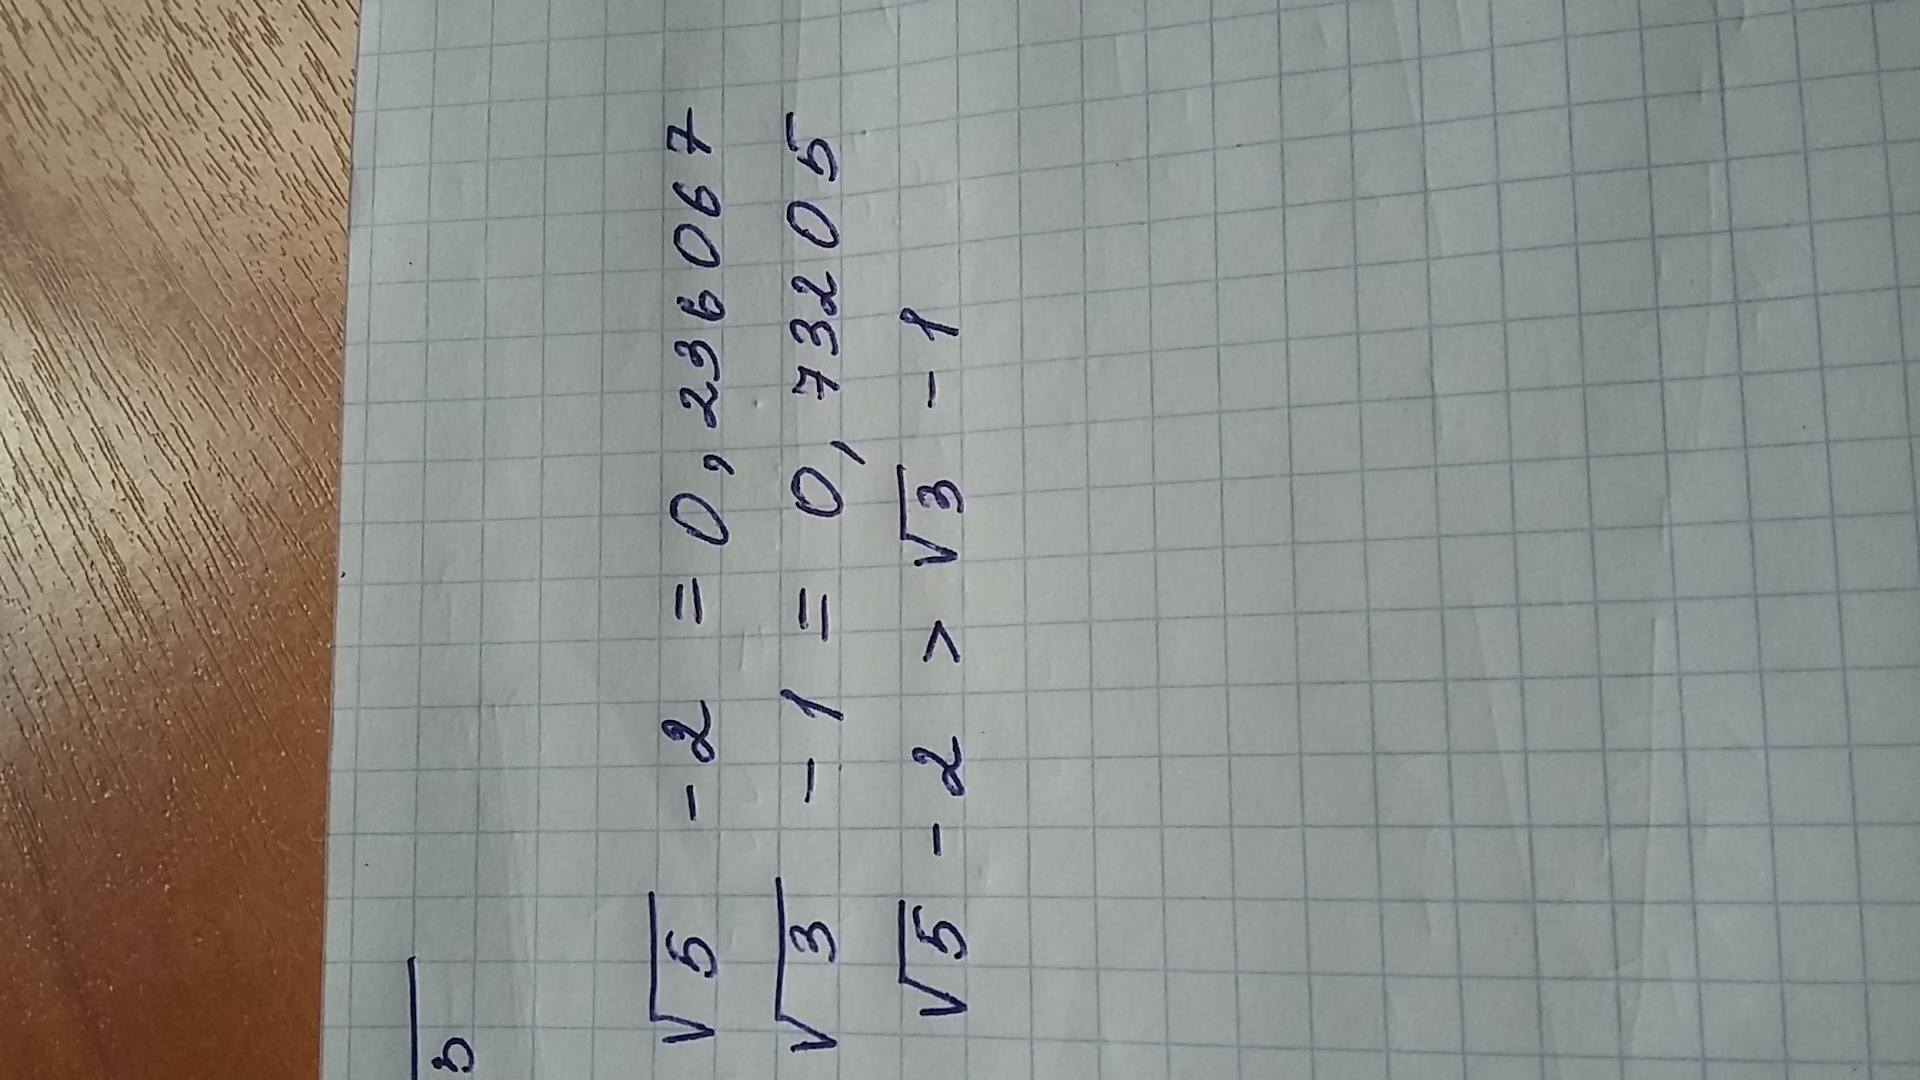 √5 - 2 = 0,236067
√3 - 1 = 0,73205
√5 - 2 > √3 - 1